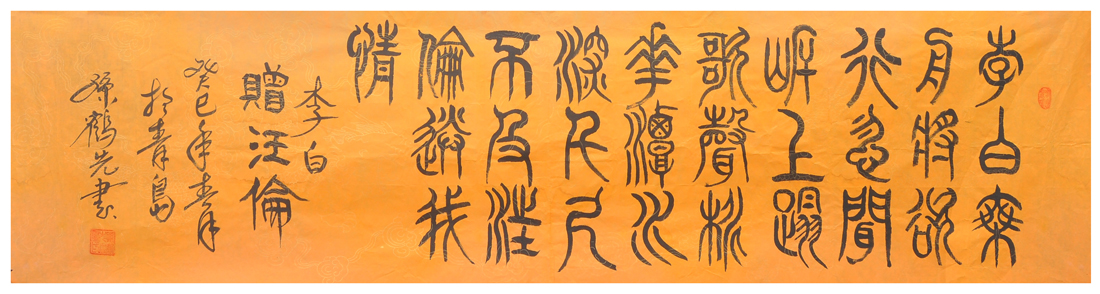 李白乘
舟將欲
行忽聞
岸上蹋
歌聲桃
華潭水
深千尺
不及汪
倫送我
情
李白
贈汪倫
癸巳年春月
於青島
孫鶴先書